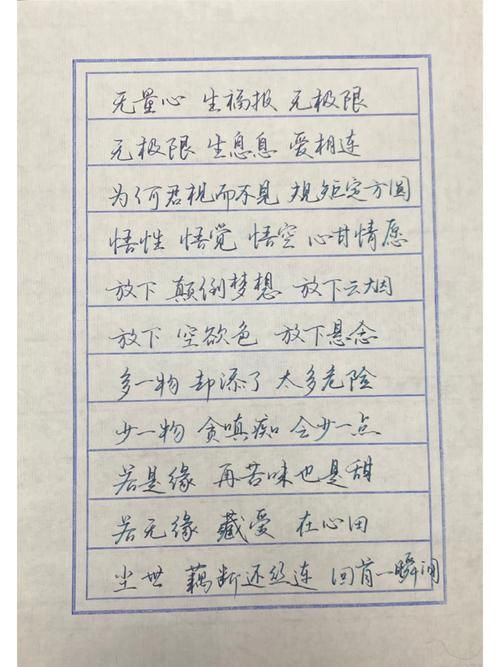 无量心 生福报 无极限
无极限 生息息 爱相连
为何君视而不见 规矩定方圆
悟性 悟觉 悟空 心甘情愿
放下 颠倒梦想 放下云烟
放下 空欲色 放下悬念
多一物 却添了 太多危险
少一物 贪嗔痴 会少一点
若是缘 再苦味也是甜
若无缘 藏爱 在心田
尘世 藕断还丝连 回首一瞬间